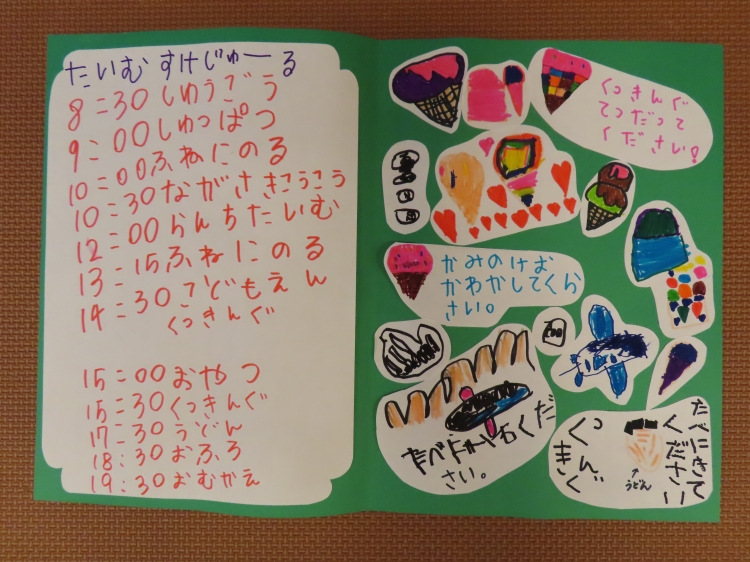 たいむ すけじゅーる
8:30しゅうごう
9:00しゅっぱつ
10:00ふねにのる
10:30ながさきこうこう
12:00らんちたいむ
13:15ふねにのる
14:30こどもえん
くっきんぐ
15:00おやつ
15:30くっきんぐ
17:30うどん
18:30おふろ
19:30おむかえ
くっきんぐ
てつだって
ください!
かみのけお
かわかしてくだ
さい。
くだ
さい。
たべにきて
ください
うどん
くっ
きんぐ